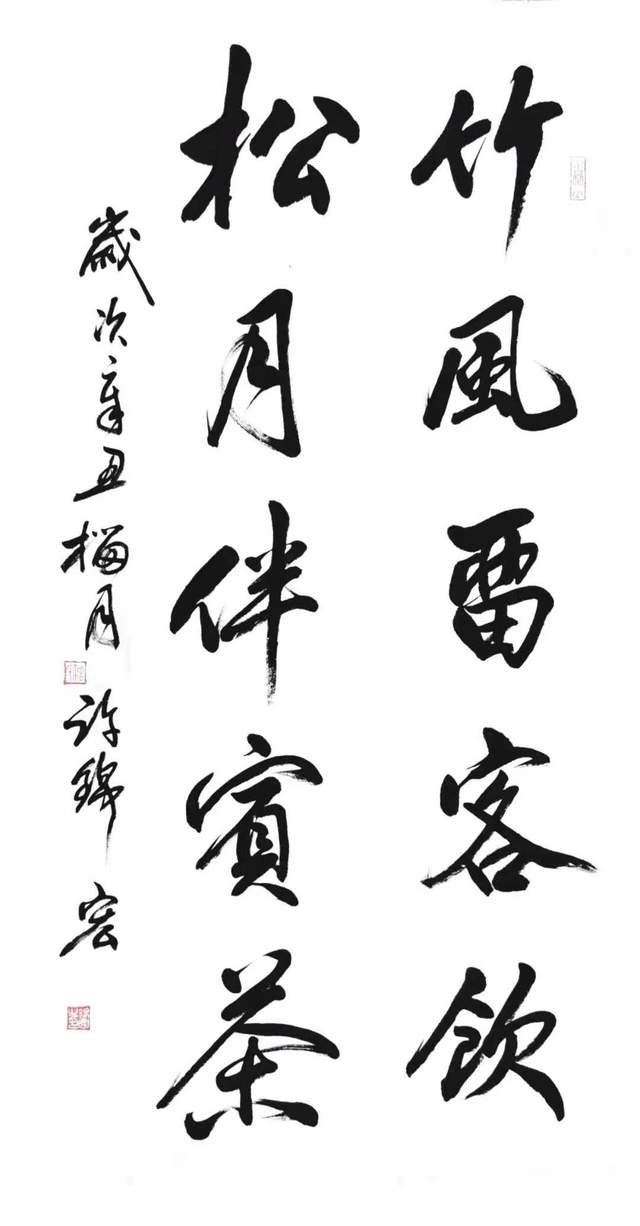 竹風留客飲
松月伴賓茶
歲次辛丑榴月許錦宏